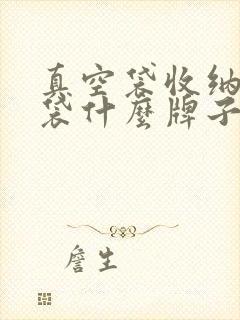 真空袋收纳
袋什麼牌子
詹生